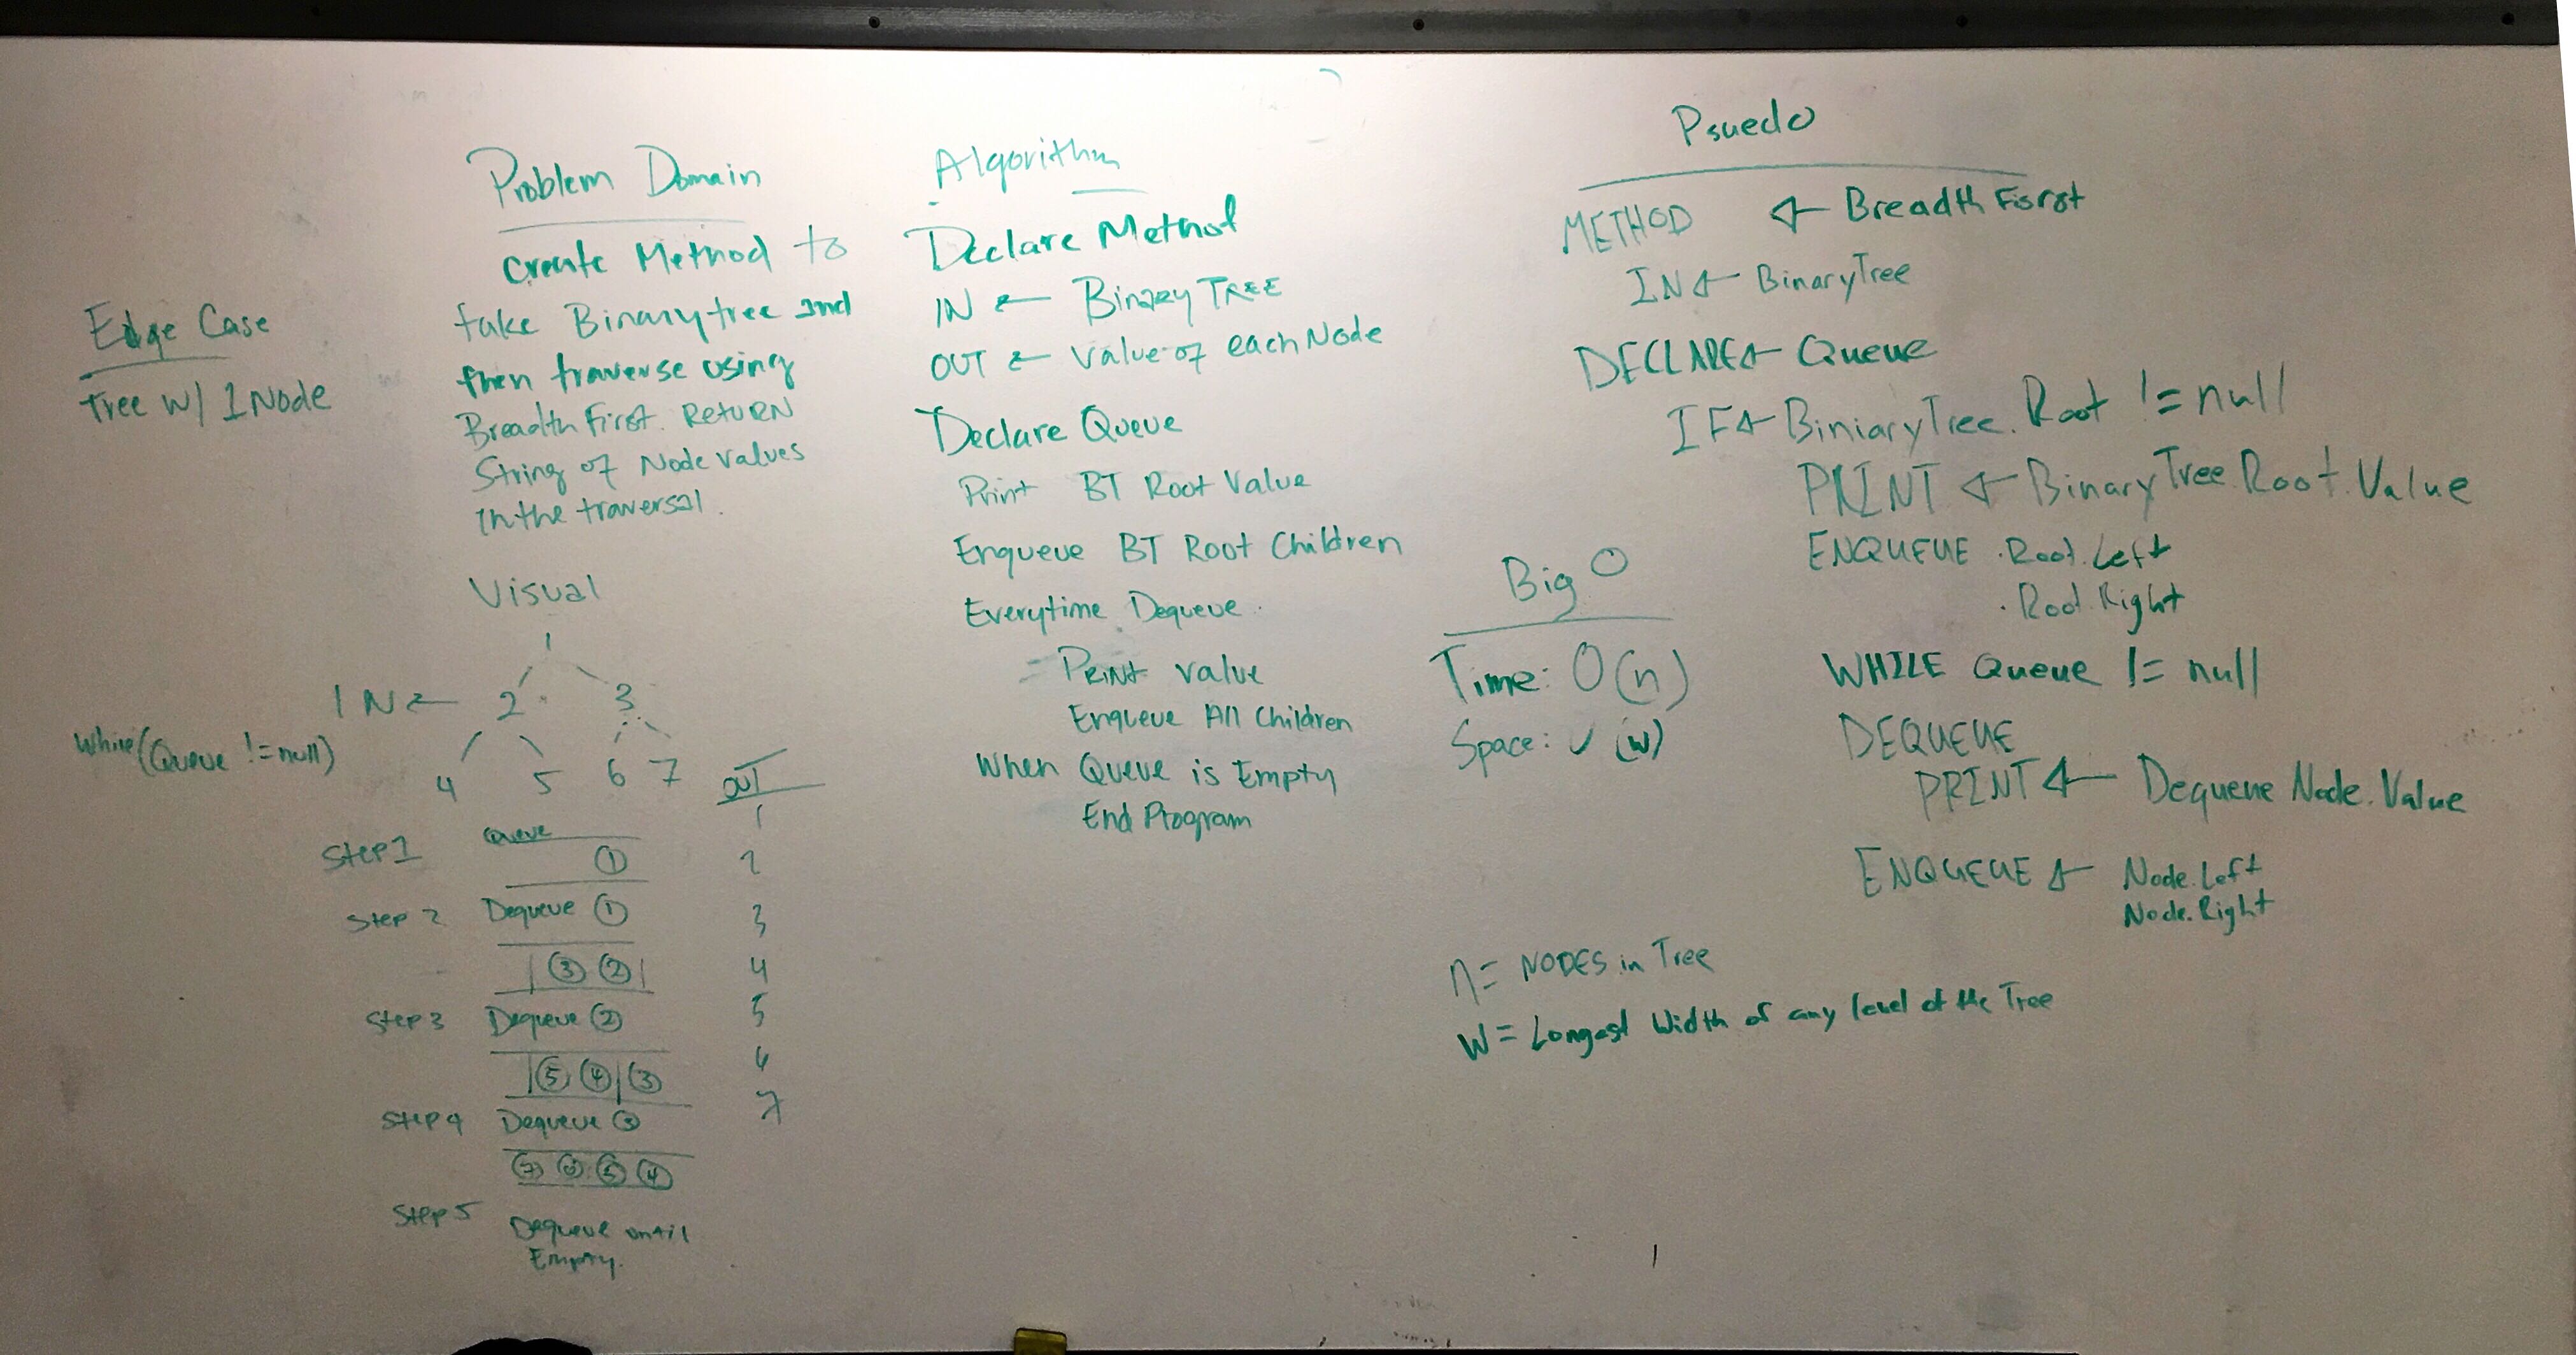 Edge Case
Tree w/ 1 Node
Problem Domain
Create Method to
take Binarytree and
then traverse using
Breadth First. RETURN
String of Node values
in the traversal.
Visual
1
IN ← 2 3
while(Queue != null)
4 5 6 7
OUT
1
2
3
4
5
6
7
Queue
Step 1 ①
Step 2 Dequeue ①
③ ②
Step 3 Dequeue ②
⑤ ④ ③
Step 4 Dequeue ③
⑦ ⑥ ⑤ ④
Step 5 Dequeue until
Empty.
Algorithm
Declare Method
IN ← Binary TREE
OUT ← Value of each Node
Declare Queue
Print BT Root Value
Enqueue BT Root Children
Everytime Dequeue
- PRINT value
Enqueue All Children
When Queue is Empty
End Program
Big O
Time: O(n)
Space: (w)
n = NODES in Tree
W = Longest Width of any level of the Tree
Psuedo
METHOD ← Breadth First
IN ← BinaryTree
DECLARE ← Queue
IF ← BiniaryTree.Root != null
PRINT ← BinaryTree.Root.Value
ENQUEUE .Root.Left
.Root.Right
WHILE Queue != null
DEQUEUE
PRINT ← Dequeue Node.Value
ENQUEUE ← Node.Left
Node.Right